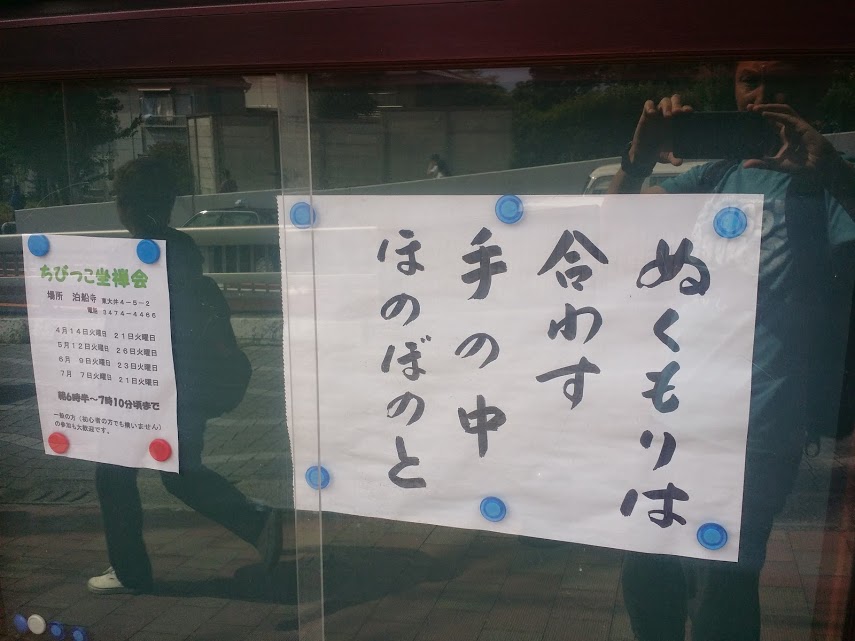 ぬくもりは
合わす
手の中
ほのぼのと
ちびっこ坐禅会
場所 泊船寺 東大井4-5-2
電話 3474-4466
4月14日火曜日 21日火曜日
5月12日火曜日 26日火曜日
6月 9日火曜日 23日火曜日
7月 7日火曜日 21日火曜日
朝6時半~7時10分頃まで
一般の方(初心者の方でも構いません)
の参加も大歓迎です。